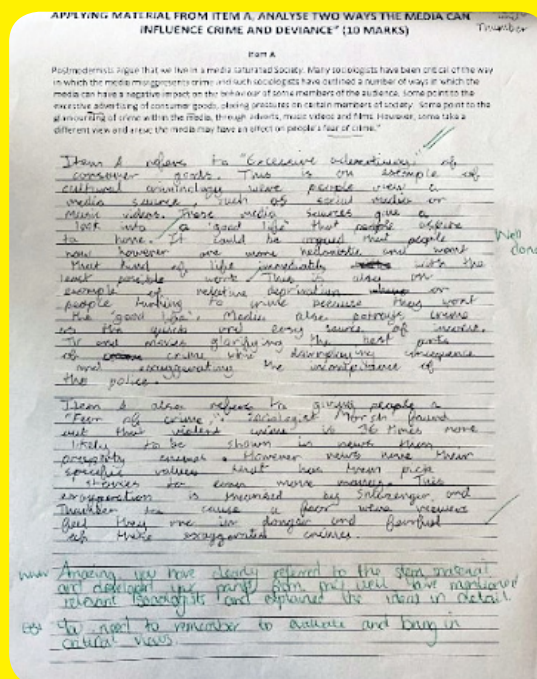 APPLYING MATERIAL FROM ITEM A, ANALYSE TWO WAYS THE MEDIA CAN
INFLUENCE CRIME AND DEVIANCE" (10 MARKS)
Thumber
Item A
Postmodernists argue that we live in a media saturated Society. Many sociologists have been critical of the way
in which the media misrepresents crime and such sociologists have outlined a number of ways in which the
media can have a negative impact on the behaviour of some members of the audience. Some point to the
excessive advertising of consumer goods, placing pressures on certain members of society. Some point to the
glamourising of crime within the media, through adverts, music videos and films. However, some take a
different view and argue the media may have an effect on people's fear of crime."
Item A refers to "Excessive advertising" of
consumer goods. This is an example of
cultural criminology where people view a
media source, such as social media or
Music videos. These media sources give a
look into a 'good life' that people aspire
to have. It could be argued that people
Well done
now however are more hedonistic and want
that kind of life immediately with the
least possible work. This is also an
example of relative deprivation or
people turning to crime because they want
the 'good life'. Media also portrays crime
as the quick and easy source of income.
TV and movies glorifying the best parts
of crime while downplaying consequence
and exaggerating the incompetence of
the police.
Item A also refers to giving people a
"Fear of crime,". Sociologist found
out that violent crime is 36 times more
likely to be shown in news than
property crimes. However news have their
specific values that has them pick
stories to earn more money. This
exaggeration is theorised by and
to cause a fear were viewers
feel they are in danger and fearful
of these exaggerated crimes.
www Amazing, you have clearly referred to the stem material
and developed your points from. You well have mentioned
relevant sociologists and explained the ideas in detail.
EBI You need to remember to evaluate and bring in
critical views